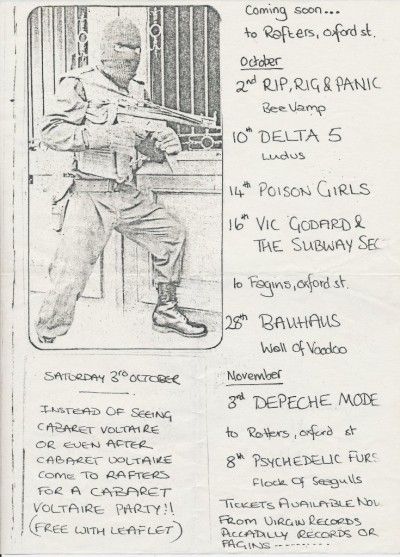 Coming soon...
to Rafters, oxford st.
October
2nd RIP, RIG & PANIC
Bee Vamp
10th DELTA 5
Ludus
14th POISON GIRLS
16th VIC GODARD &
THE SUBWAY SEC
to Fagins, oxford st.
28th BAUHAUS
Wall of Voodoo
November
3rd DEPECHE MODE
to Rafters, oxford st
8th PSYCHEDELIC FURS
Flock of Seagulls
TICKETS AVAILABLE NOW
FROM VIRGIN RECORDS
PICCADILLY RECORDS OR
FAGINS ----------
SATURDAY 3rd OCTOBER
INSTEAD OF SEEING
CABARET VOLTAIRE
OR EVEN AFTER
CABARET VOLTAIRE
COME TO RAFTERS
FOR A CABARET
VOLTAIRE PARTY!!
(FREE WITH LEAFLET)